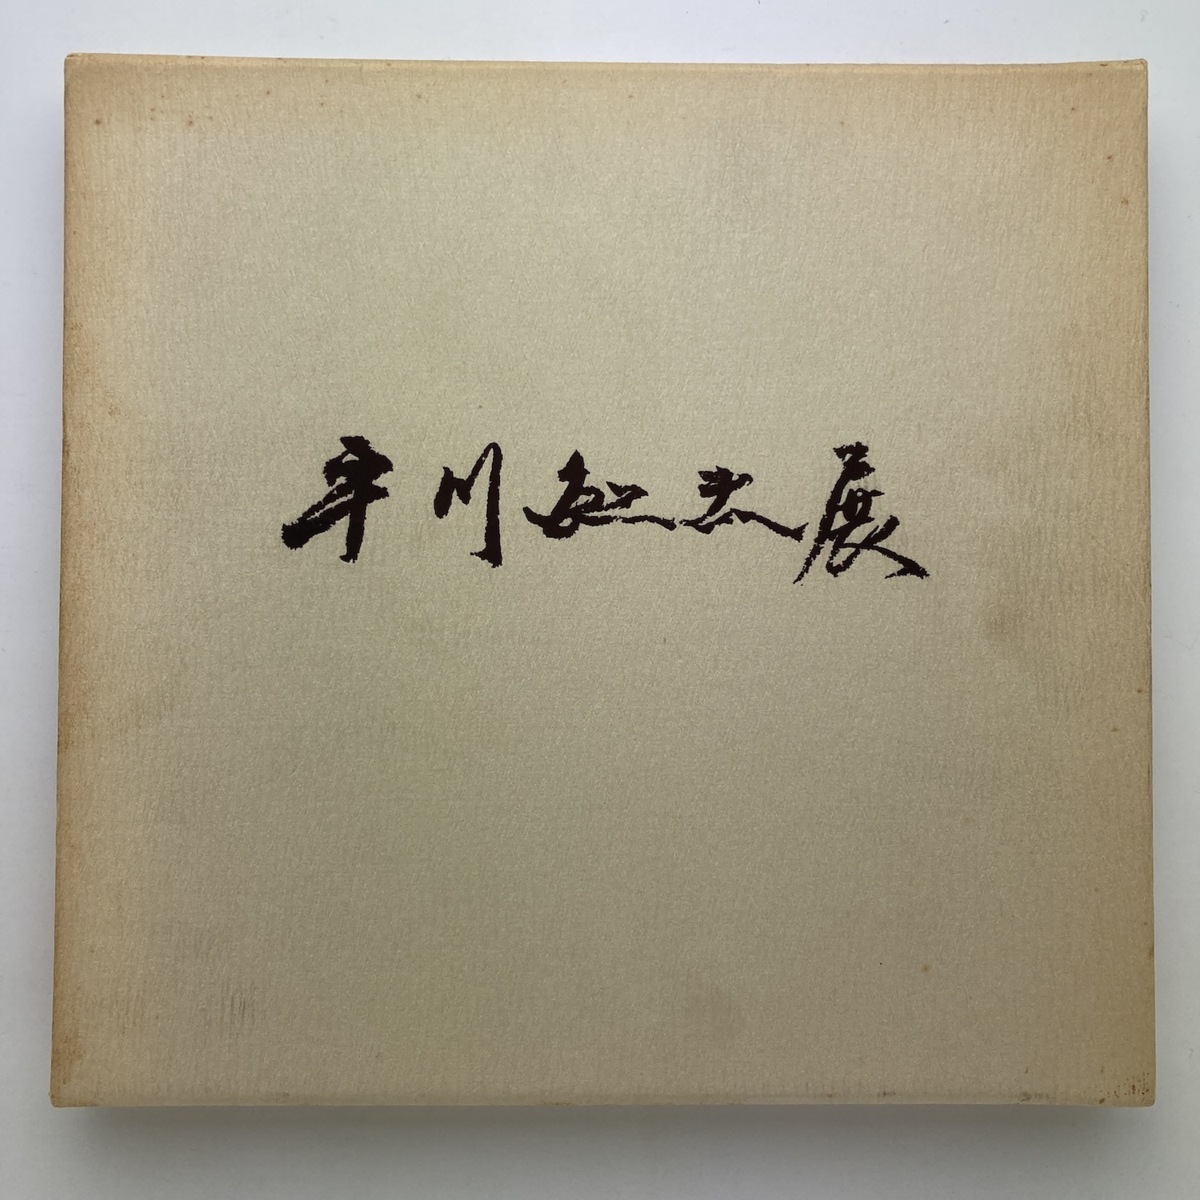 平川敏夫展